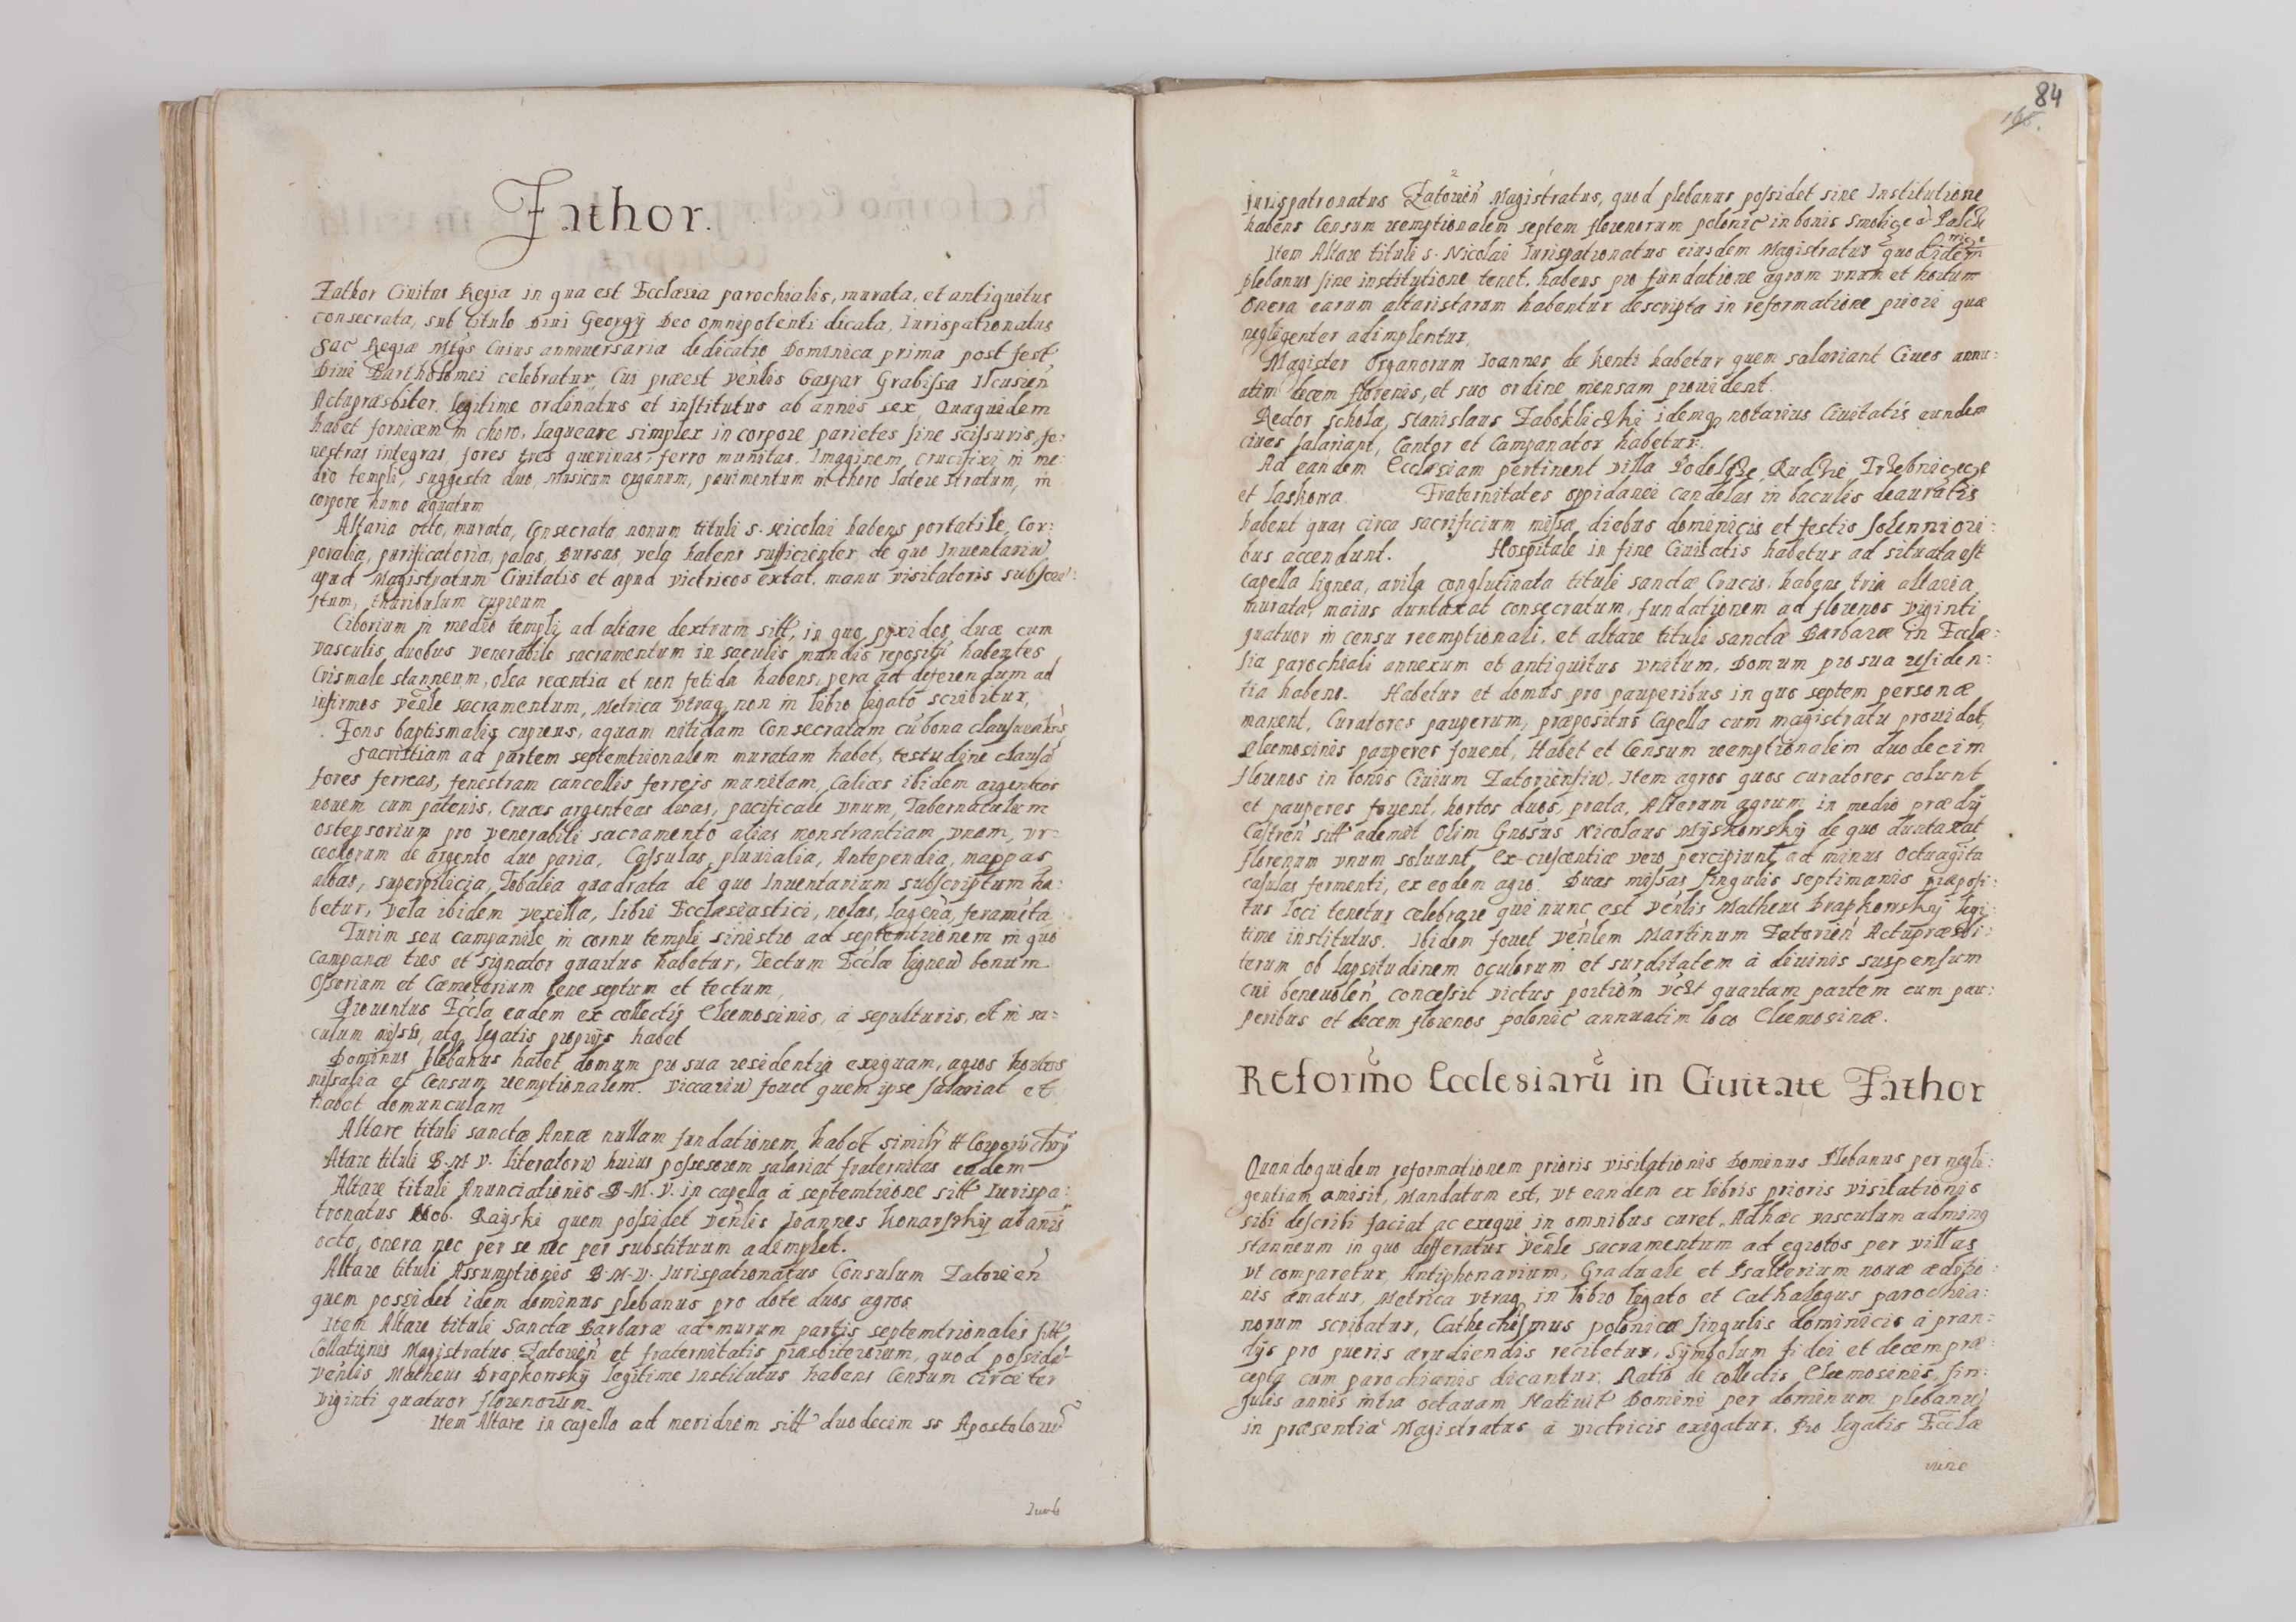 Zathor.
Zathor Ciuitas Regia in qua est Ecclæsia parochialis, murata, et antiquitus
consecrata, sub titulo Diui Georgÿ Deo omnipotenti dicata, Iurispatronatus
Sac Regiæ Mtÿs Cuius anniuersaria dedicatio Dominica prima post fest
Diui Bartholomei celebratur, Cui præest venlis Gaspar Grabissa Ilcusien
Actupræsbiter, legitime ordinatus et institutus ab annis sex, Quæquidem
habet fornicem in choro, laqueare simplex in corpore parietes sine scissuris, fe:
nestras integras, fores tres querinas ferro munitas. Imaginem crucifixi in me:
dio templi, suggesta duo, Musicum organum, pauimentum in choro latere stratum, in
corpore humo æquatum
Altaria octo, murata, Consecrata nonum tituli S. Nicolai habens portatile, Cor:
poralia, purificatoria, palas, Bursas, vela habens sufficienter de quo Inuentariu
apud Magistratum Ciuitatis et apud victricos extat. manu visitatoris subscri:
ptum, thuribulum cupreum
Ciborium in medio templi ad altare dextrum sitt, in quo pyxides duæ cum
vasculis duobus venerabile sacramentum in saculis mundis repositu habentes
Crismale stanneum, olea recentia et non fetida habens, pera ad deferendum ad
infirmos venle sacramentum, Metrica vtraq non in libro ligato scribitur,
Fons baptismalis cupreus, aquam nitidam Consecratam cu bona clausura
Sacristiam ad partem septemtrionalem muratam habet, testudine clausa
fores ferreas, fenestram cancellis ferreis munitam, Calices ibidem argenteos
nouem cum patenis, Cruces argenteas duas, pacificale vnum, Tabernaculum
ostensorium pro venerabili sacramento alias monstrantiam vnam, vr=
ceolorum de argento duo paria, Cassulas, pluuialia, Antependia, mappas
albas, superpilicia, Tobalia quadrata de quo Inuentarium subscriptum ha:
betur, vela ibidem vexilla, libri Ecclæsiastici, nolas, lagena, feramēta
Turim seu campanile in cornu templi sinistro ad septemtrionem in quo
campanæ tres et signator quartus habetur, Tectum Ecclæ ligneu bonum
Ossorium et Cæmeterium bene septum et tectum,
Prouentus Eccla eadem ex collectis Eleemosinis, a sepulturis, et in sa=
culum missis, atq legatis proprÿs habet
Dominus plebanus habet domum pro sua residentia exiguam, agros hortos
missalia et Censum reemptionalem. Viccariu fouet quem ipse salariat et
habet domunculam
Altare tituli sanctæ Annæ nullam fundationem habet similr et Corporis Chri
Altare tituli B. M V. literatoru huius possesorem salariat fraternitas eadem
Altare tituli Anunciationis B. M. V. in capella a septemtrione sitt Iurispa:
tronatus Nob. Raÿski quem possidet venlis Ioannes Konarskÿ ab annis
octo, onera nec per se nec per substitutum adimplet.
Altare tituli Assumptionis B. M. V. Iurispatronatus Consulum Zatorien
quem possidet idem dominus plebanus pro dote duos agros
Item Altare tituli Sanctæ Barbaræ ad murum partis septemtrionalis sitt
Collationis Magistratus Zatorien et fraternitatis præsbiterorum, quod possidet
venlis Matheus Drapkowskÿ legitime Institutus habens Censum circiter
viginti quatuor florenorum
Item Altare in capella ad meridiem sitt duodecim ss Apostoloru
84
Iurispatronatus Zatorien Magistratus, quod plebanus possidet sine Institutione
habens Censum reemptionalem septem florenorum polonic in bonis Smolice
Item Altare tituli S. Nicolai Iurispatronatus eiusdem Magistratus quod idem
plebanus sine institutione tenet. habens pro fundatione agrum vnum et hortum
Onera earum altaristarum habentur descripta in reformatione priori quæ
negligenter adimplentur
Magister Organorum Ioannes de Kenti habetur quem salariant Ciues annu:
atim decem florenis, et suo ordine mensam prouident.
Rector schola Stanislaus Zaboklickhi idemq notarius Ciuitatis eundem
ciues salariant, Cantor et Campanator habetur.
Ad eandem Ecclæsiam pertinent villa Podolsze Rudze Trzebniczecze
et laskowa Fraternitates oppidanei candelas in baculis deauratis
habent quas circa sacrificium missa diebus dominicis et festis solenniori:
bus accendunt. Hospitale in fine Ciuitatis habetur ad situata est
capella lignea, avila conglutinata tituli sanctæ Crucis, habens tria altaria
murata, maius duntaxat consecratum, fundationem ad florenos viginti
quatuor in censu reemptionali. et altare tituli sanctæ Barbaræ in Ecclæ:
sia parochiali annexum et antiquitus vnitum, Domum pro sua residen:
tia habens. Habetur et domus pro pauperibus in quo septem personæ
manent, Curatores pauperum, præpositus Capella cum magistratu prouidet,
eleemosinis pauperes fouent, Habet et Censum reemptionalem duodecim
florenos in bonis Ciuium Zatoriensiu. Item agros quos curatores colunt
et pauperes fouent, hortos duos, prata, Alterum agrum in medio prædÿ
Castren sitt ademit olim Gnosus Nicolaus Mÿskowskÿ de quo duntaxat
florenum vnum soluunt, ex crescentiæ vero percipiunt ad minus octuagita
casulas fermenti, ex eodem agro. Duas missas singulis septimanis præposi:
tus loci tenetur celebrare qui nunc est venlis Matheus Drapkowskÿ legi:
time institutus. Ibidem fouet venlem Martinum Zatorien Actupræsbi:
terum ob lapsitudinem oculorum et surditatem a diuinis suspensum
cui beneuolen concessit victus portion vclt quartam partem cum pau:
peribus et decem florenos polonic annuatim loco Eleemosinæ.
Reformo Ecclesiaru in Ciuitate Zathor
Quandoquidem reformationem prioris visitationis Dominus Plebanus per negli:
gentiam amisit, Mandatum est, vt eandem ex libris prioris visitationis
sibi describi faciat ac exequi in omnibus curet. Ad hæc vasculum ad ming
stanneum in quo defferatur venle sacramentum ad egrotos per villas
vt comparetur, Antiphonarium, Graduale et Psalterium nouæ æditio:
nis ematur, Metrica vtraq in libro ligato et Cathalogus parochia:
norum scribatur, Cathechismus polonicæ singulis dominicis a pran:
dÿs pro pueris erudiendis recitetur, Sÿmbolum fidei et decem præ:
cepta cum parochianis dicantur. Ratio de collectis Eleemosinis, sin:
gulis annis intra octauam Natiuit Domini per dominum plebanu
in præsentia Magistratus a victricis exigatur. Pro legatis Ecclæ